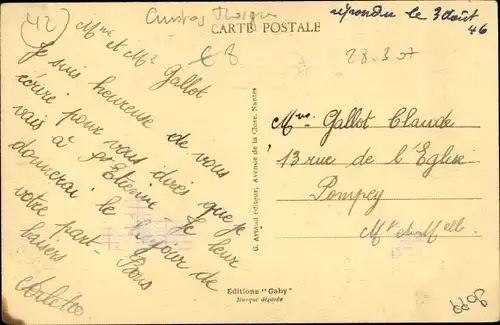 42
CARTE POSTALE
répondu le 3 août
46
€ 8
28.3.07
Mme et Mr Gallot
Je suis heureuse de vous
écrire pour vous dires que je
vais à St Etienne Je leur
donnerai le bonjour de
votre part- Bons
baisers
Arlette
Mme Gallot Claude
13 rue de l'Eglise
Pompey
Mt et Mell.
G. Artaud Editeur, Avenue de la Close, Nantes
Editions "Gaby"
Marque déposée